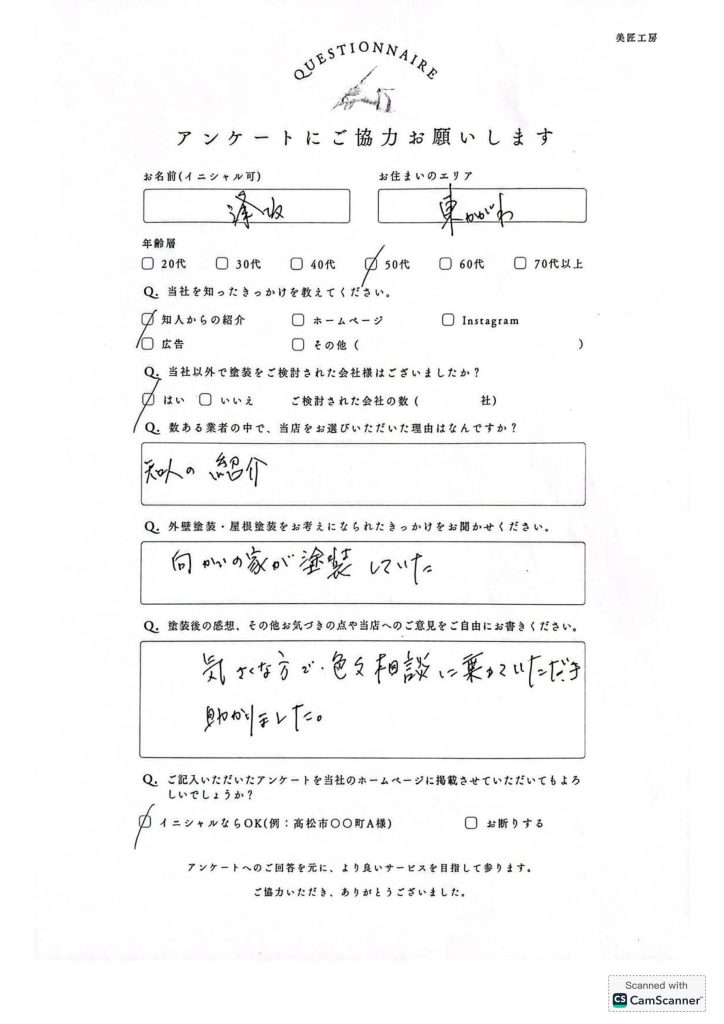 美匠工房
QUESTIONNAIRE
アンケートにご協力お願いします
お名前(イニシャル可) お住まいのエリア
逢坂 東かがわ
年齢層
20代 30代 40代 50代 60代 70代以上
Q. 当社を知ったきっかけを教えてください。
知人からの紹介 ホームページ Instagram
広告 その他 ( )
Q. 当社以外で塗装をご検討された会社様はございましたか?
はい いいえ ご検討された会社の数 ( 社)
Q. 数ある業者の中で、当店をお選びいただいた理由はなんですか?
知人の紹介
Q. 外壁塗装・屋根塗装をお考えになられたきっかけをお聞かせください。
向かいの家が塗装していた
Q. 塗装後の感想、その他お気づきの点や当店へのご意見をご自由にお書きください。
気さくな方で、色々相談に乗っていただき
助かりました。
Q. ご記入いただいたアンケートを当社のホームページに掲載させていただいてもよろ
しいでしょうか?
イニシャルならOK(例：高松市〇〇町A様) お断りする
アンケートへのご回答を元に、より良いサービスを目指して参ります。
ご協力いただき、ありがとうございました。
Scanned with
CS CamScanner